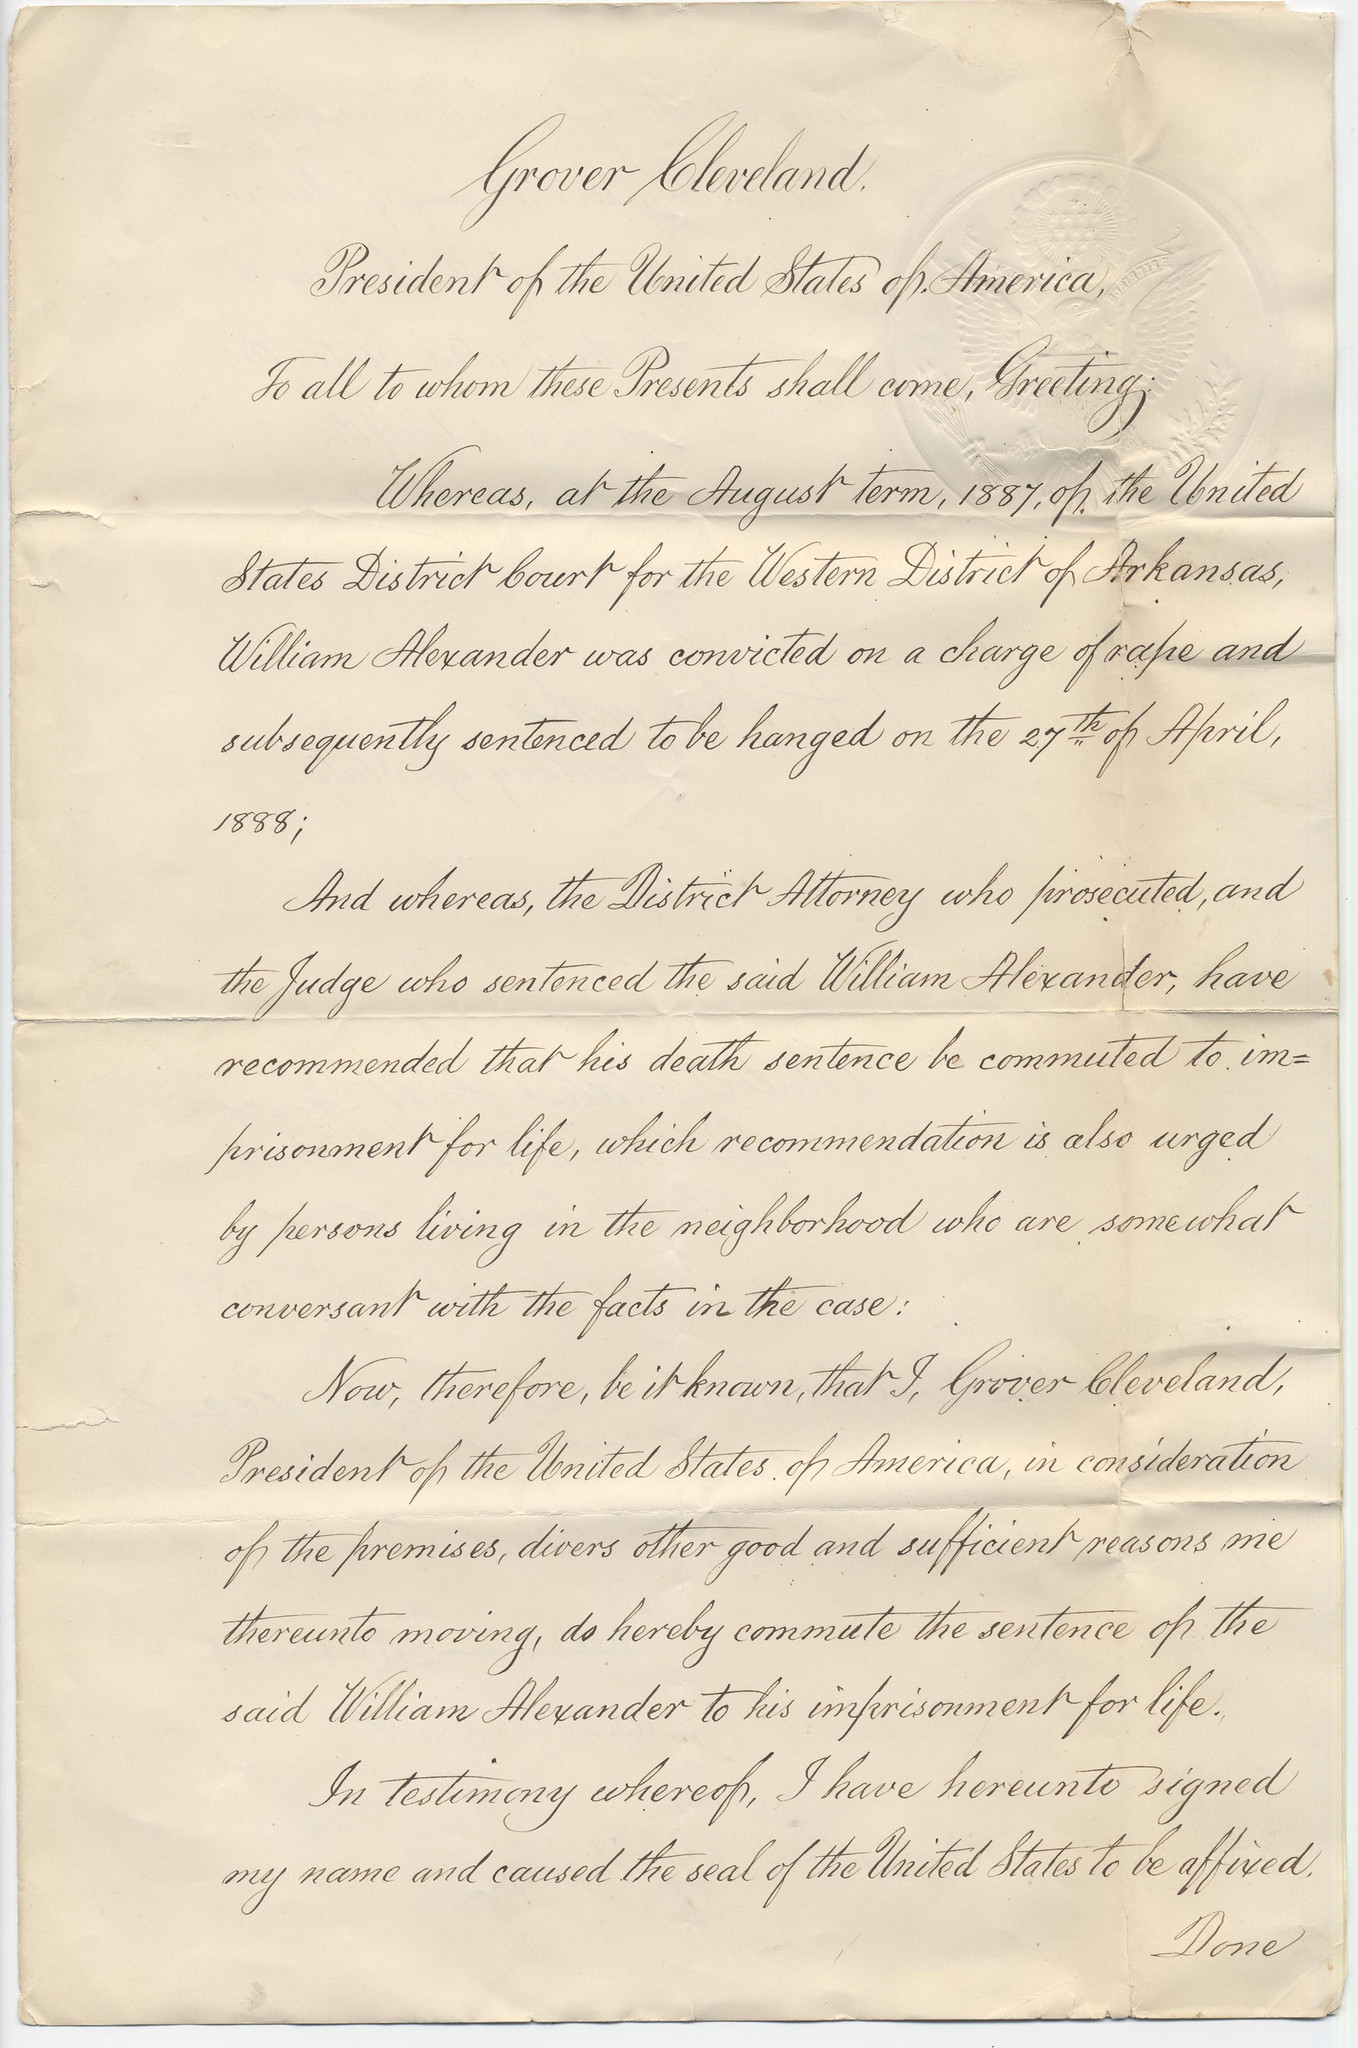 Grover Cleveland.
President of the United States of America,
To all to whom these Presents shall come, Greeting:
Whereas, at the August term, 1887, of the United
States District Court for the Western District of Arkansas,
William Alexander was convicted on a charge of rape and
subsequently sentenced to be hanged on the 27th of April,
1888;
And whereas, the District Attorney who prosecuted, and
the Judge who sentenced the said William Alexander, have
recommended that his death sentence be commuted to im=
prisonment for life, which recommendation is also urged
by persons living in the neighborhood who are somewhat
conversant with the facts in the case:
Now, therefore, be it known, that I, Grover Cleveland,
President of the United States of America, in consideration
of the premises, divers other good and sufficient reasons me
thereunto moving, do hereby commute the sentence of the
said William Alexander to his imprisonment for life.
In testimony whereof, I have hereunto signed
my name and caused the seal of the United States to be affixed.
Done